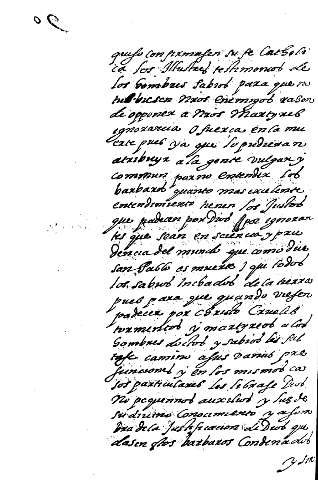 quiso confirmasen su fe Catholi
ca los Illustres testimonios de
los hombres sabios para que no
tubiesen nros enemigos rason
de opponer a nros Martyres
ignorancia o fuerça en la mu
erte pues ya que lo pudieran
atribuyr a la gente vulgar y
commun por no entender los
barbaros quanto mas exelente
entendimiento tienen los Justos
que padecen por Dios por ignoran
tes que sean en sciencia y pru
dencia del mundo que como dice
san Pablo es muerte y que todos
los sabios inchados de la tierra
pues para que quando viesen
padecer por christo crueles
tormentos y martyrios a los
hombres doctos y sabios les
camino a sus vanas pre
sunciones y en los mismos ca
sos particulares les sobrase Dios
No pequeños auxilios y luz de
su divino conocimiento y
de la Justificacion de Dios que
barbaros Condenados